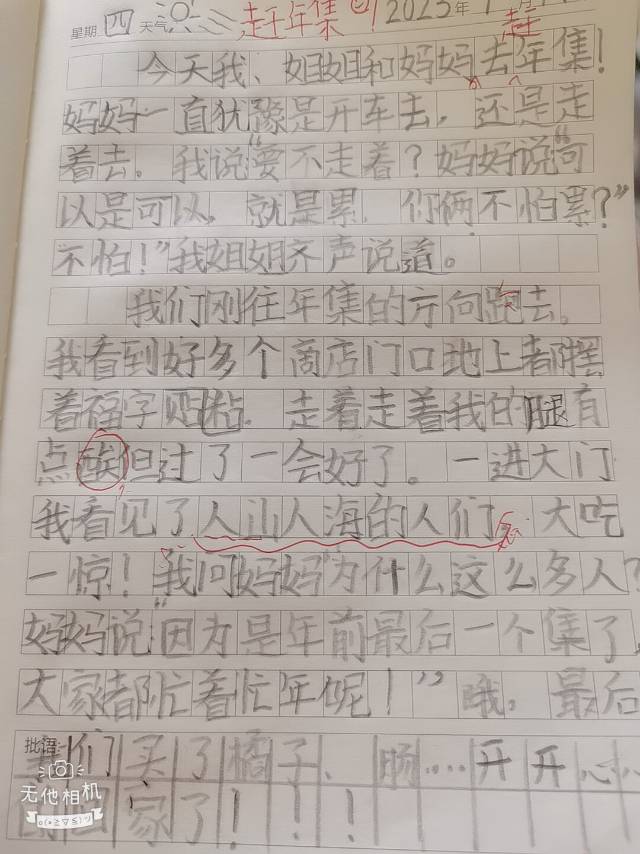 星期 四 天气 赶年集 2023年1月
赶
今天我、姐姐和妈妈去年集!
妈妈一直犹豫是开车去,还是走
着去。我说“要不走着?妈妈说“可
以是可以,就是累,你俩不怕累?”
不怕!”我姐姐齐声说道。
我们刚往年集的方向跑去。
我看到好多个商店门口地上都摆
着福字贴,走着走着我的腿有
点酸但过了一会好了。一进大门
我看见了人山人海的人们,大吃
一惊!我问妈妈“为什么这么多人?
妈妈说“因为是年前最后一个集了,
大家都忙着忙年呢!”哦,最后
批语:
们买了橘子、肠....开开心心
回家了!!!
无他相机